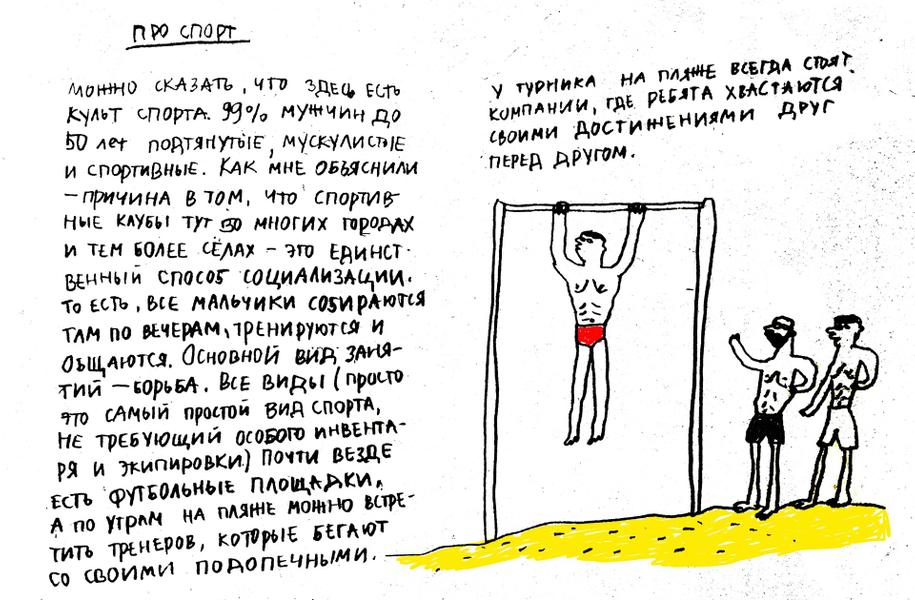 ПРО СПОРТ
МОЖНО СКАЗАТЬ, ЧТО ЗДЕСЬ ЕСТЬ
КУЛЬТ СПОРТА. 99% МУЖЧИН ДО
50 лет ПОДТЯНУТЫЕ, МУСКУЛИСТЫЕ
И СПОРТИВНЫЕ. КАК МНЕ ОБЪЯСНИЛИ
– ПРИЧИНА В ТОМ, ЧТО СПОРТИВ-
НЫЕ КЛУБЫ ТУТ ВО МНОГИХ ГОРОДАХ
И ТЕМ БОЛЕЕ СЁЛАХ – ЭТО ЕДИНСТ-
ВЕННЫЙ СПОСОБ СОЦИАЛИЗАЦИИ.
ТО ЕСТЬ, ВСЕ МАЛЬЧИКИ СОБИРАЮТСЯ
ТАМ ПО ВЕЧЕРАМ, ТРЕНИРУЮТСЯ И
ОБЩАЮТСЯ. ОСНОВНОЙ ВИД ЗАНЯ-
ТИЙ – БОРЬБА. ВСЕ ВИДЫ (ПРОСТО
ЭТО САМЫЙ ПРОСТОЙ ВИД СПОРТА,
НЕ ТРЕБУЮЩИЙ ОСОБОГО ИНВЕНТА-
РЯ И ЭКИПИРОВКИ) ПОЧТИ ВЕЗДЕ
ЕСТЬ ФУТБОЛЬНЫЕ ПЛОЩАДКИ,
А ПО УТРАМ НА ПЛЯЖЕ МОЖНО ВСТРЕ-
ТИТЬ ТРЕНЕРОВ, КОТОРЫЕ БЕГАЮТ
СО СВОИМИ ПОДОПЕЧНЫМИ.
У ТУРНИКА НА ПЛЯЖЕ ВСЕГДА СТОЯТ
КОМПАНИИ, ГДЕ РЕБЯТА ХВАСТАЮТСЯ
СВОИМИ ДОСТИЖЕНИЯМИ ДРУГ
ПЕРЕД ДРУГОМ.